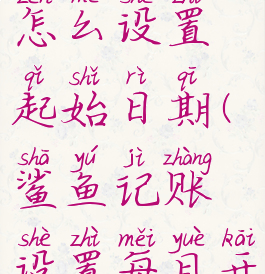 zěn me shè zhì
怎么设置
qǐ shǐ rì qī
起始日期(
shā yú jì zhàng
鲨鱼记账
shè zhì měi yuè kāi
设置每月开